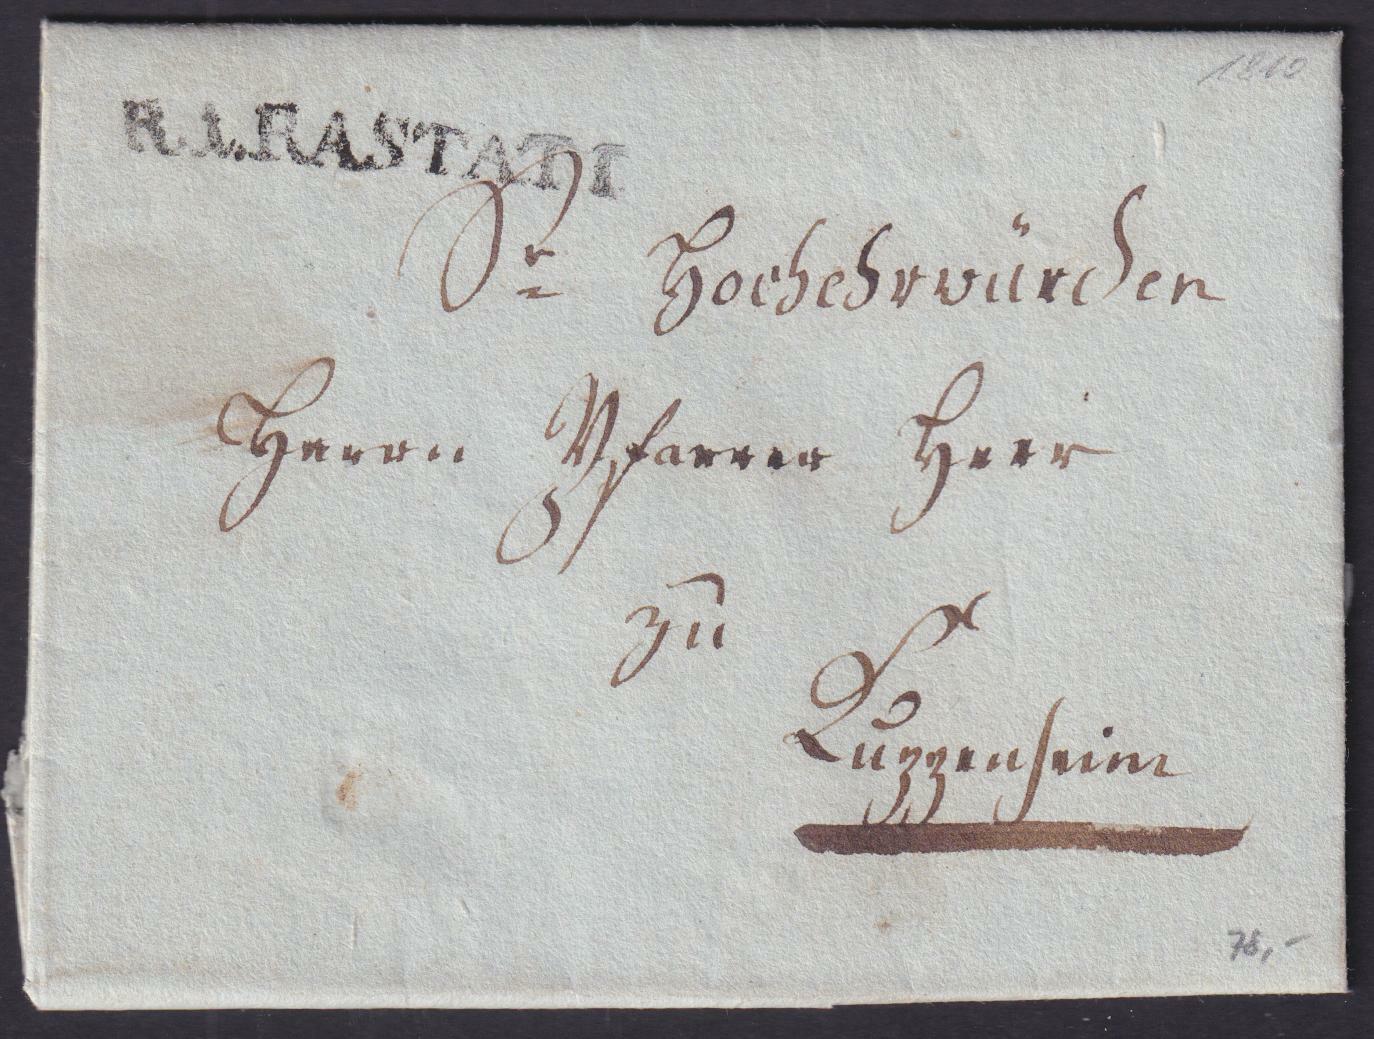 1810
R.1.RASTATT
Sr Hochehrwürden
Herrn Pfarrer Herr
zu
Kuppenheim
78,-